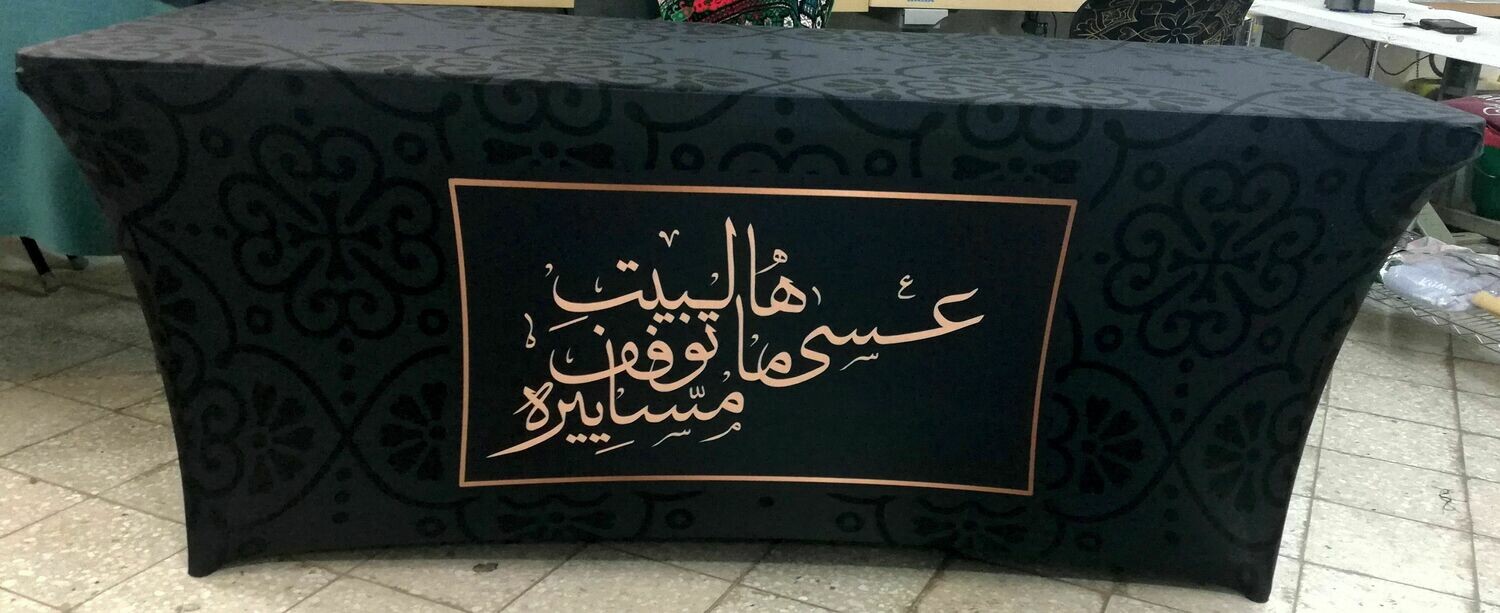 عسى هالبيت
ما توقف
مساييره